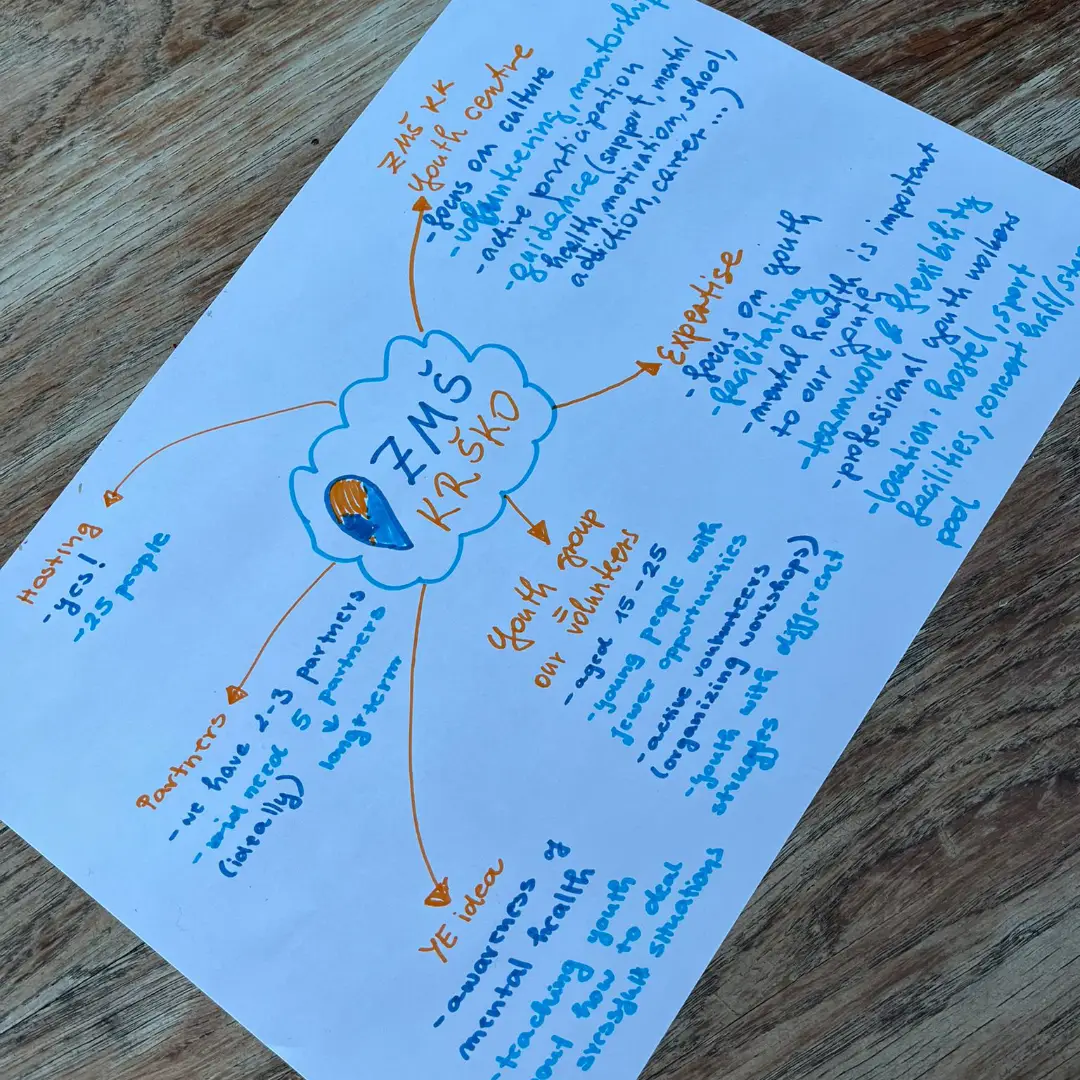 ZMŠ
KRŠKO
ZMŠ KK
Youth centre
- focus on culture
- volunteering, mentorship
- active participation
- guidance (support, mental
health, motivation, school,
addiction, career ...)
Expertise
- focus on youth
- facilitating
- mental health is important
to our youth
- teamwork & flexibility
- professional youth workers
- location: hostel, sport
facilities, concert hall/
pool
Youth group
=
our volunteers
- aged 15-25
- young people with
fewer opportunities
- active voulunteers
(organizing workshops)
- youth with different
struggles
YE idea
- awareness of
mental health
- teaching youth
how to deal
stressfull situations
Partners
- we have 2-3 partners
- need 5 partners
(ideally)
long term
Hosting
- yes!
- 25 people